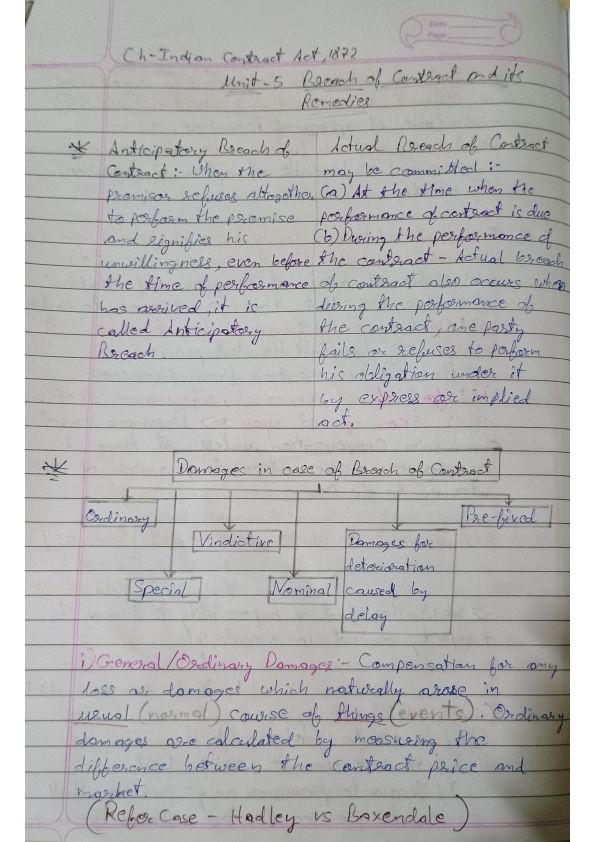 Date
Page
Ch-Indian Contract Act, 1872
Unit-5 Breach of Contract and its
Remedies
Anticipatory Breach of
Contract :- When the
promisor refuses altogether
to perform the promise
and signifies his
unwillingness, even before
the time of performance
has arrived, it is
called Anticipatory
Breach.
Actual Breach of Contract
may be committed :-
(a) At the time when the
performance of contract is due
(b) During the performance of
the contract - Actual breach
of contract also occurs when
during the performance of
the contract, one party
fails or refuses to perform
his obligation under it
by express or implied
act.
Damages in case of Breach of Contract
Ordinary
Special
Vindictive
Nominal
Damages for
deterioration
caused by
delay
Pre-fixed
i) General/Ordinary Damages :- Compensation for any
loss or damages which naturally arose in
usual (normal) course of things (events). Ordinary
damages are calculated by measuring the
difference between the contract price and
market.
(Refer Case - Hadley vs Baxendale)